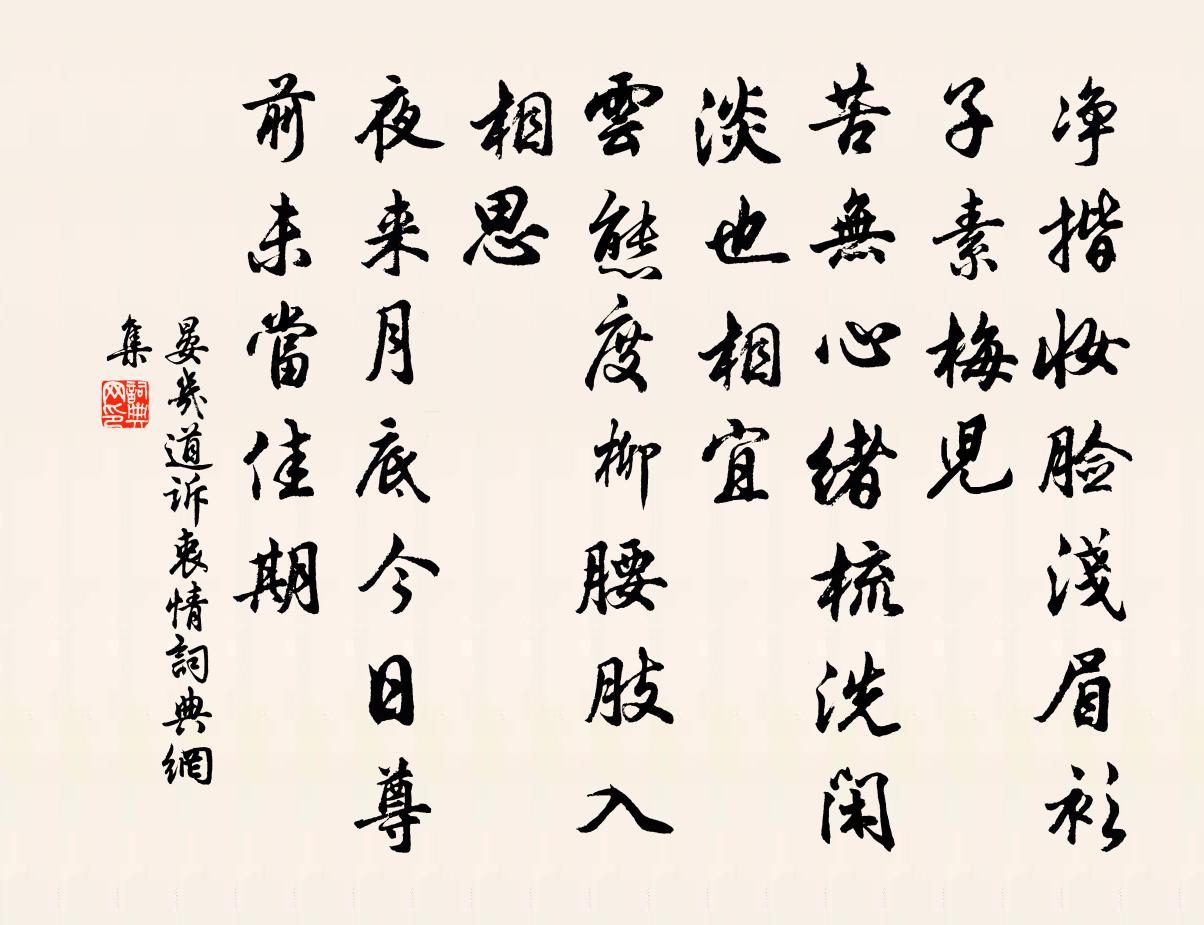 净揩妆脸淺眉衫
子素梅兒
苦無心緒梳洗閑
淡也相宜
雲態度柳腰肢入
相思
夜来月底今日尊
前未當佳期
晏幾道诉衷情詞典網
集
詞典网印